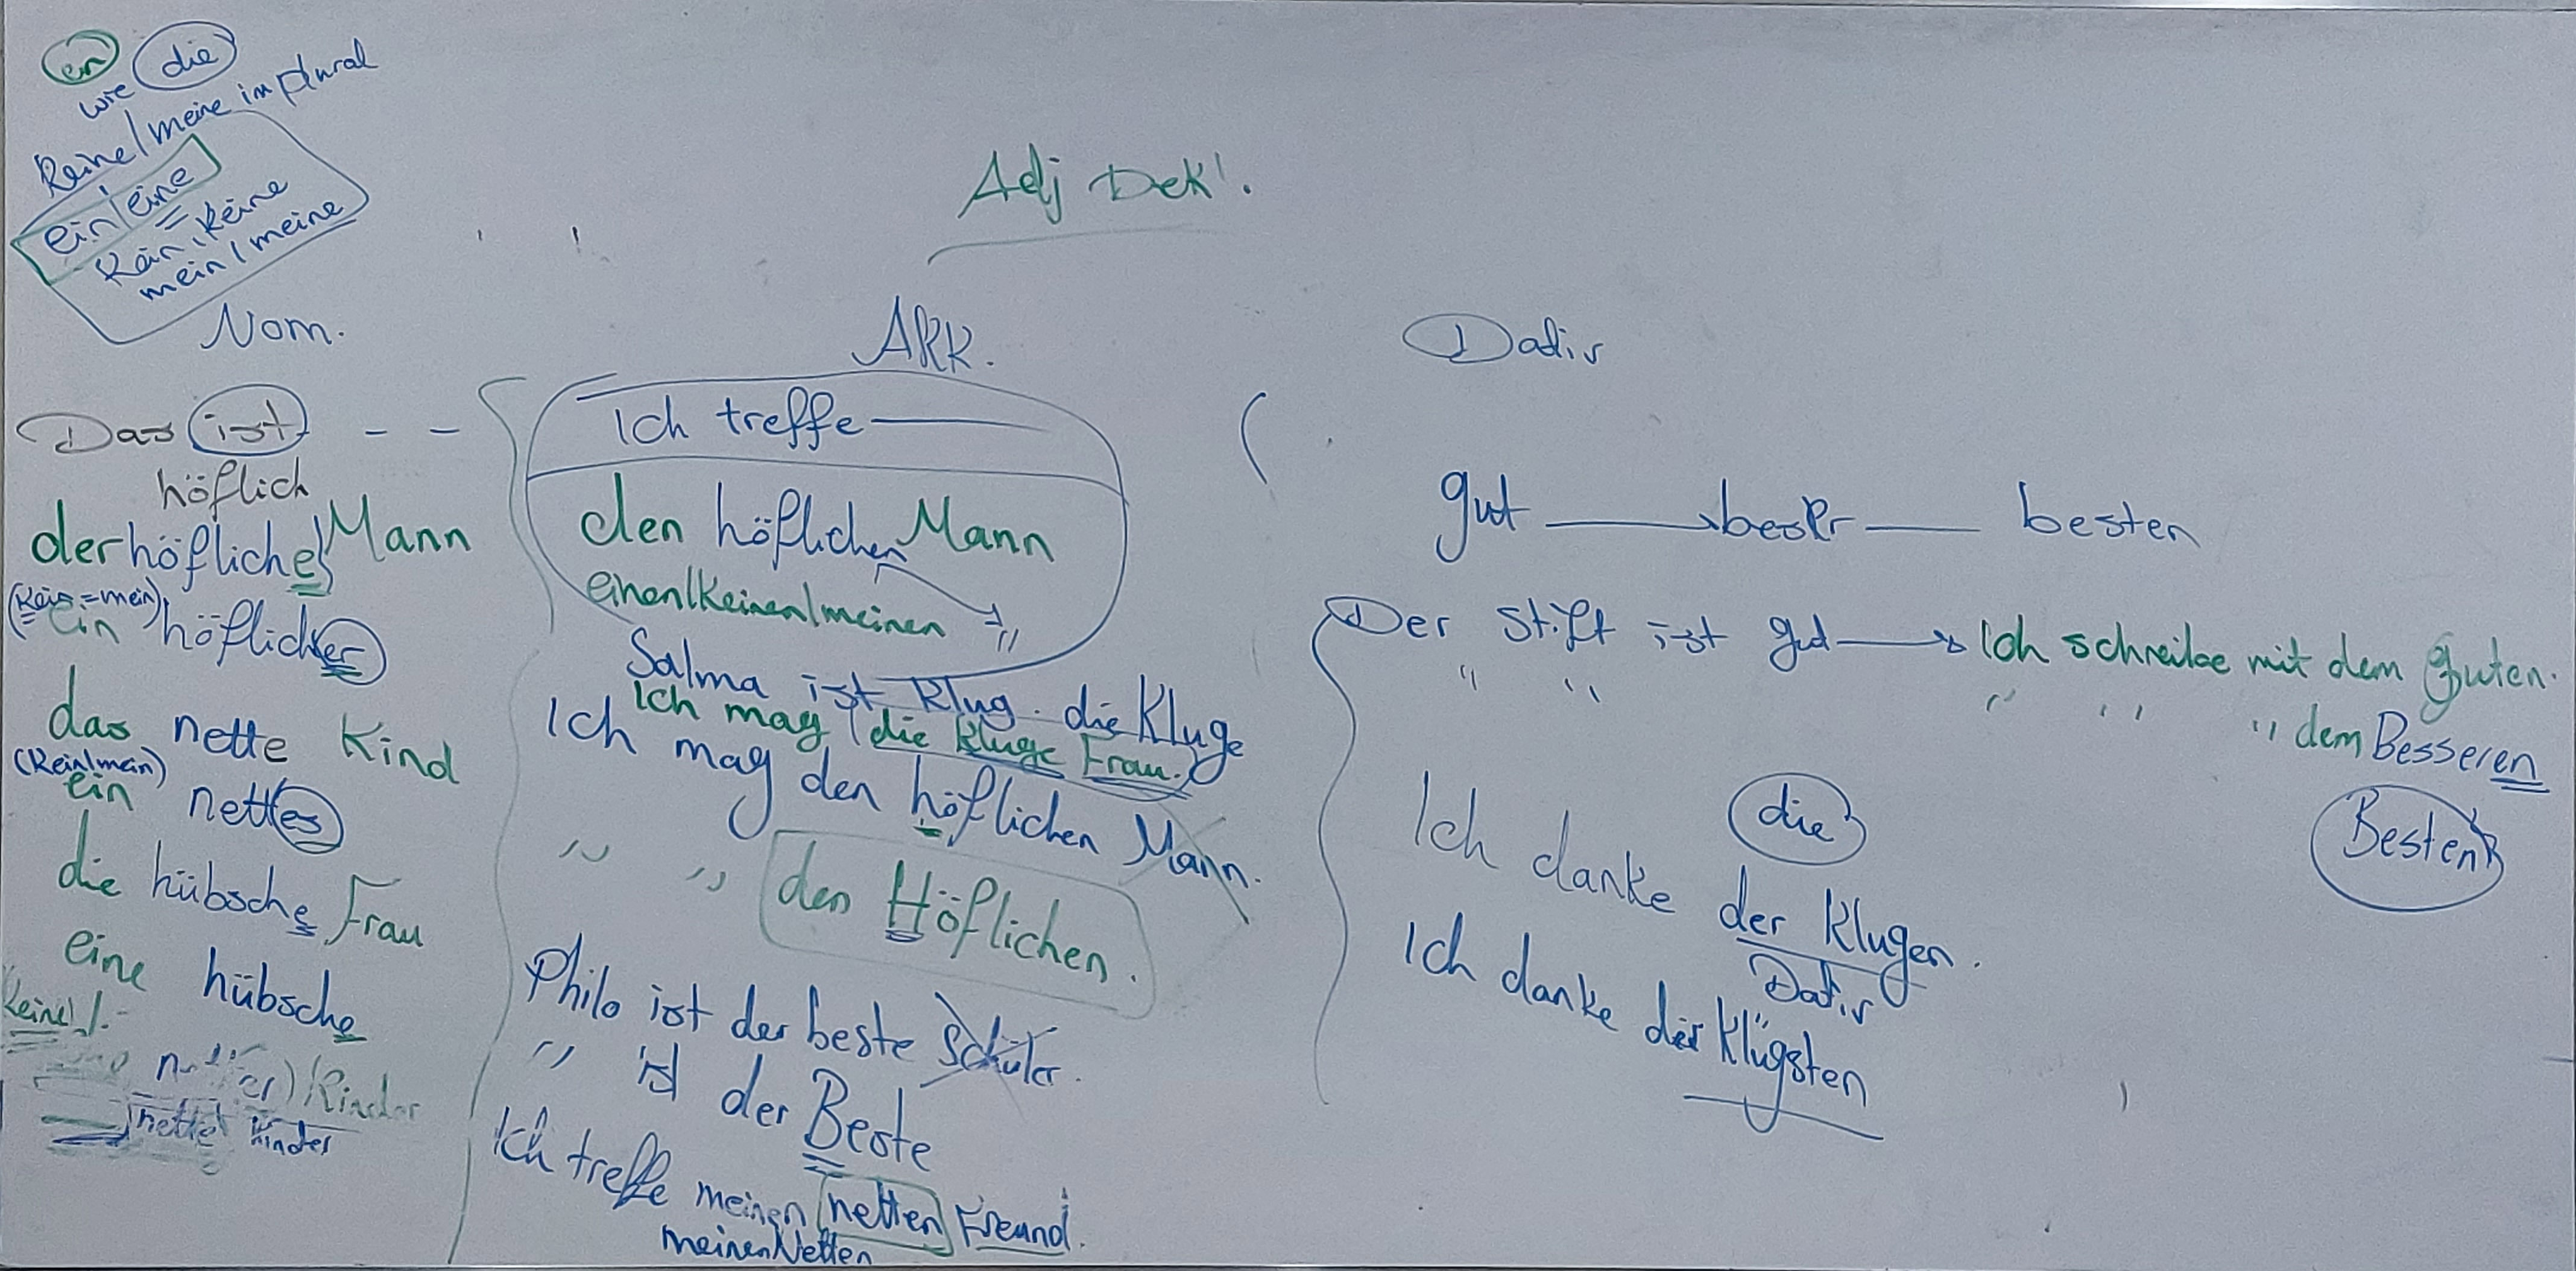 en die
wie
keine/meine im Plural
ein/eine
=
kein/keine
mein/meine
Adj Dek.
Nom.
Das ist - -
höflich
der höfliche Mann
(kein=mein)
ein höflicher
das nette Kind
(kein/mein)
ein nettes
die hübsche Frau
eine hübsche
keine/.-
er) Kinder
nette Kinder
Akk.
Ich treffe
den höflichen Mann
einen/keinen/meinen "
Salma ist klug. die Kluge
Ich mag die kluge Frau.
Ich mag den höflichen Mann.
" " den Höflichen.
Philo ist der beste Schüler.
" ist der Beste
Ich treffe meinen netten Freund.
meinen Netten
Dativ
gut besser besten
Der Stift ist gut Ich schreibe mit dem Guten.
" " " " " dem Besseren
Besten
die
Ich danke der Klugen.
Dativ
Ich danke der Klügsten